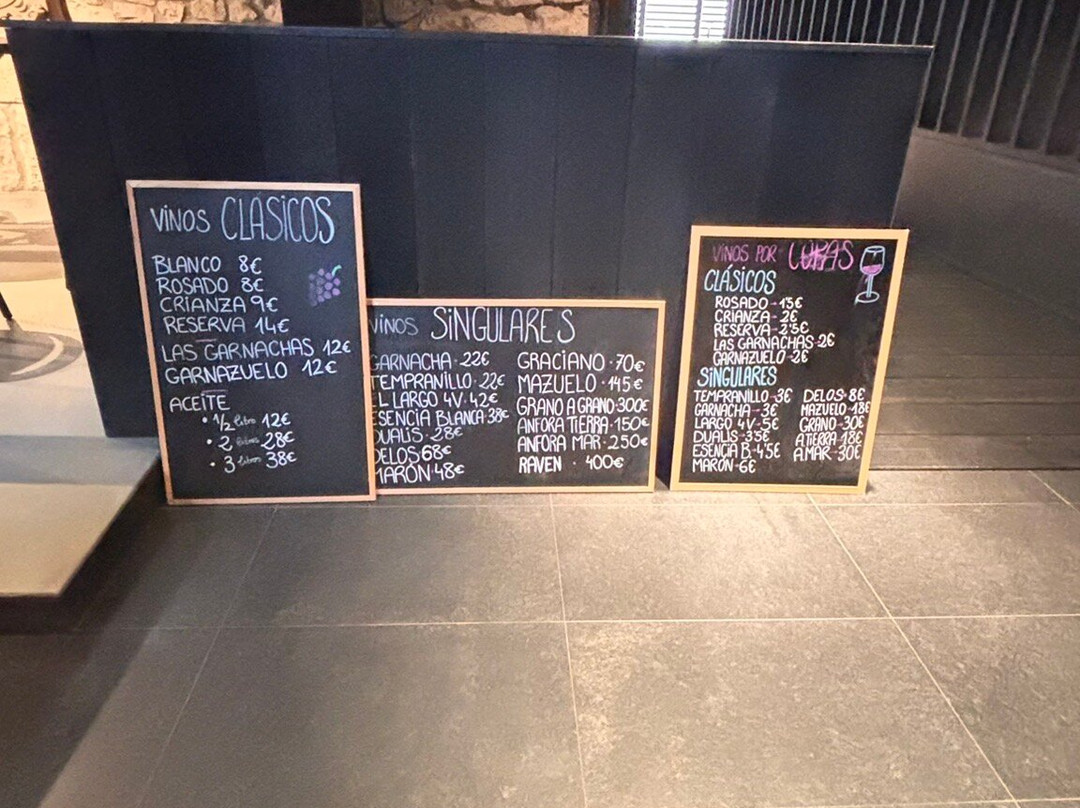 VINOS CLÁSICOS
BLANCO 8€
ROSADO 8€
CRIANZA 9€
RESERVA 14€
LAS GARNACHAS 12€
GARNAZUELO 12€
ACEITE
• 1/2 litro 12€
• 2 litros 28€
• 3 litros 38€
VINOS SINGULARES
GARNACHA · 22€
TEMPRANILLO · 22€
L LARGO 4V · 42€
ESENCIA BLANCA · 38€
DUALIS · 28€
DELOS · 68€
MARÓN · 48€
GRACIANO · 70€
MAZUELO · 145€
GRANO A GRANO · 300€
ANFORA TIERRA · 150€
ANFORA MAR · 250€
RAVEN · 400€
VINOS POR COPAS
CLÁSICOS
ROSADO - 1'5€
CRIANZA - 2€
RESERVA - 2'5€
LAS GARNACHAS - 2€
GARNAZUELO - 2€
SINGULARES
TEMPRANILLO - 3€
GARNACHA - 3€
LARGO 4V - 5€
DUALIS - 3'5€
ESENCIA B. - 4'5€
MARÓN - 6€
DELOS - 8€
MAZUELO - 18€
GRANO - 30€
A TIERRA - 18€
A.MAR - 30€